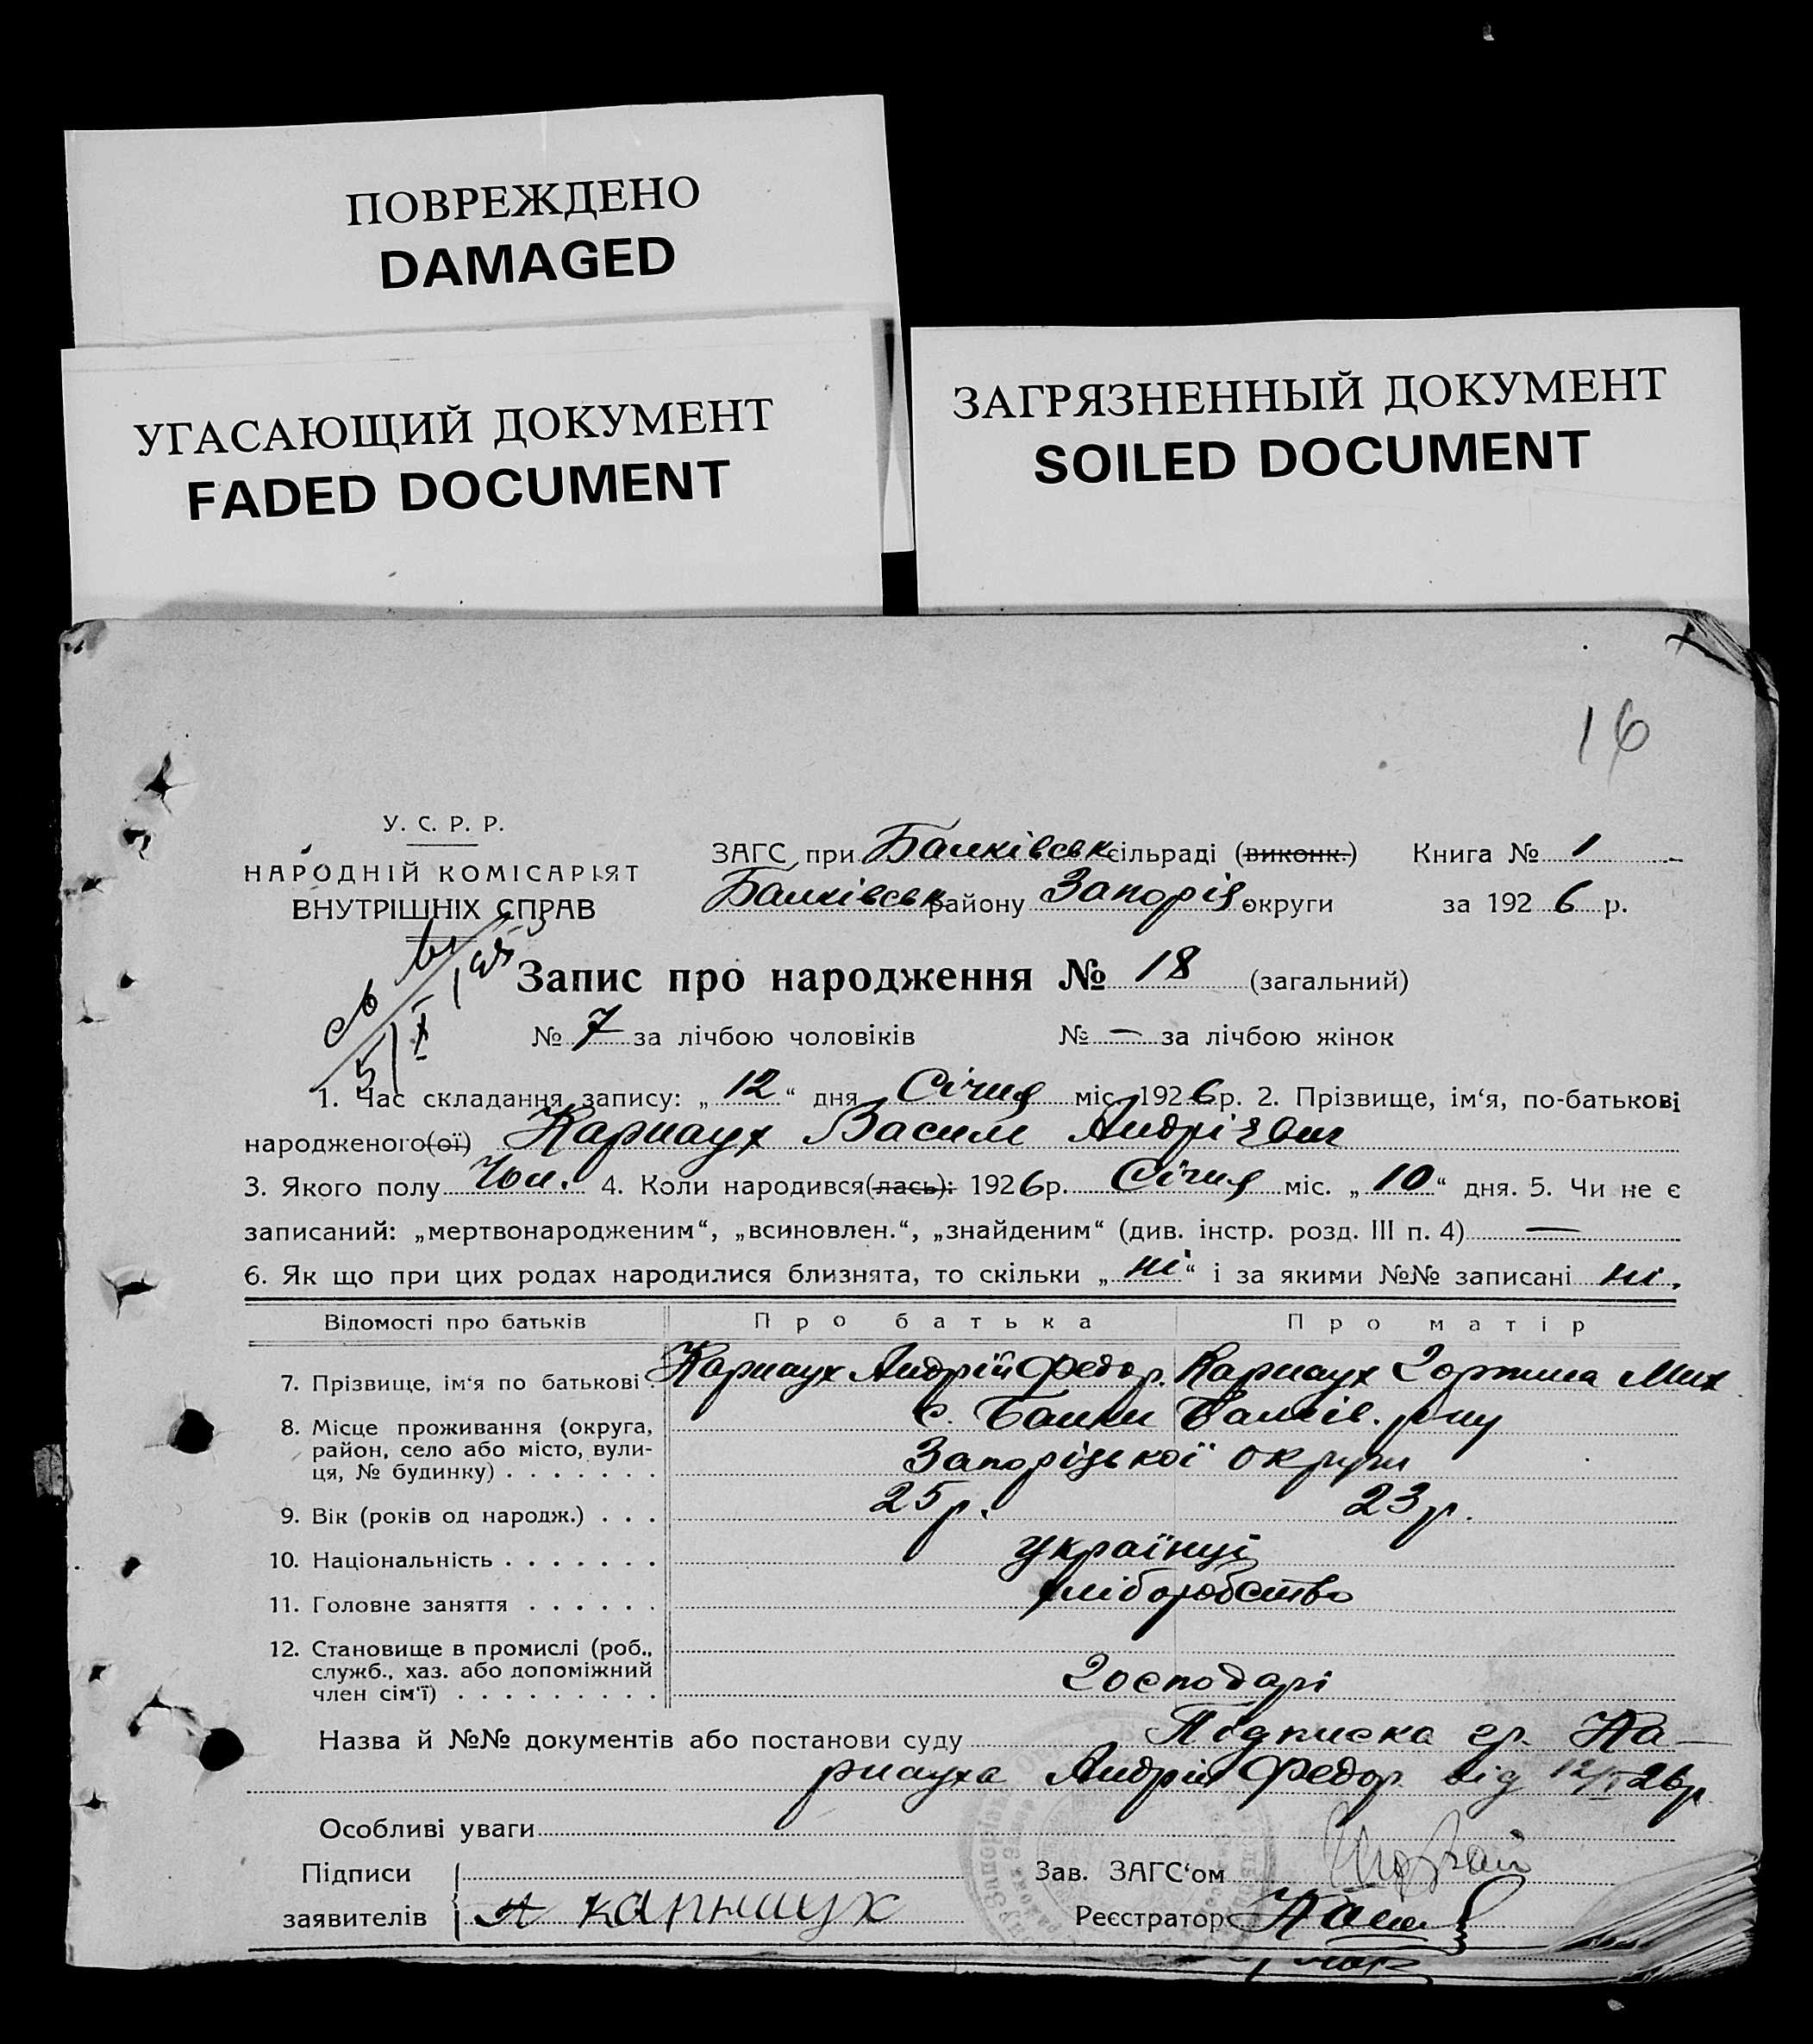 ПОВРЕЖДЕНО
DAMAGED
УГАСАЮЩИЙ ДОКУМЕНТ
FADED DOCUMENT
ЗАГРЯЗНЕННЫЙ ДОКУМЕНТ
SOILED DOCUMENT
16
У. С. Р. Р.
НАРОДНІЙ КОМІСАРІЯТ
ВНУТРІШНІХ СПРАВ
ЗАГС при Балківськ сільраді (виконк.) Книга № 1
Балківськ району Запоріз. округи за 1926 р.
Запис про народження № 18 (загальний)
№ 7 за лічбою чоловіків № — за лічбою жінок
1. Час складання запису: „12“ дня Січня міс. 1926 р. 2. Прізвище, ім‘я, по-батькові
народженого(ої) Карнаух Василь Андрієвич
3. Якого полу Чол. 4. Коли народився(лась): 1926 р. Січня міс. „10“ дня. 5. Чи не є
записаний: „мертвонародженим“, „всиновлен.“, „знайденим“ (див. інстр. розд. III п. 4) —
6. Як що при цих родах народилися близнята, то скільки „ні“ і за якими №№ записані ні.
Відомості про батьків Про батька Про матір
7. Прізвище, ім‘я по батькові . Карнаух Андрій Федор. Карнаух Горпина Мих
8. Місце проживання (округа, район, село або місто, вули-
ця, № будинку) . . . . . . . с. Балки Балків. р-ну
Запорізької округи
9. Вік (років од народж.) . . . 25 р. 23 р.
10. Національність . . . . . . . українці
11. Головне заняття . . . . . . хліборобство
12. Становище в промислі (роб.,
служб., хаз. або допоміжний
член сім‘ї) . . . . . . . . . Господарі
Назва й №№ документів або постанови суду Підписка гр. Ка-
рнауха Андрій Федор. від 12/I 26 р
Особливі уваги
Підписи
заявителів А Карнаух
Зав. ЗАГС‘ом
Реєстратор